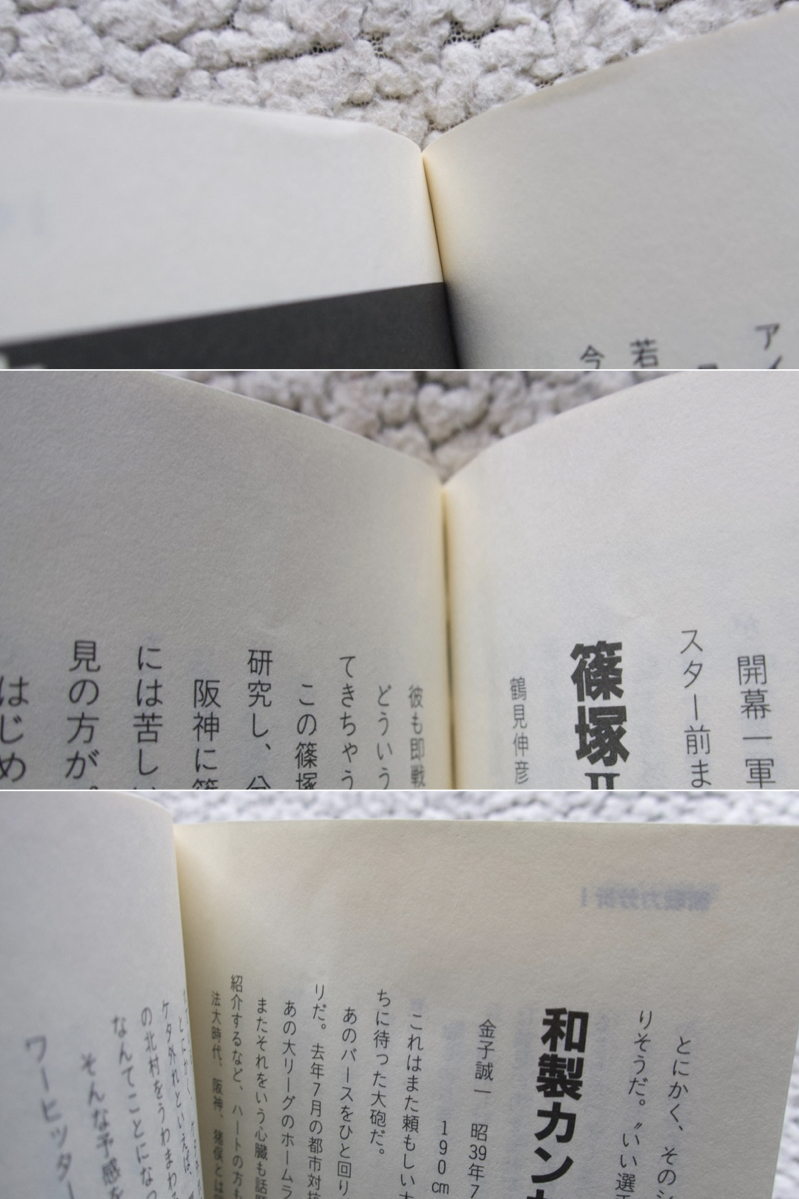 アイ
若
今
開幕一軍
スター前ま
篠塚Ⅱ
鶴見伸彦
彼も即戦
どういう
てきちゃう
この篠塚
研究し、分
阪神に
には苦しい
見の方が。
はじめ
とにかく、その
りそうだ。〝いい選
和製カン
金子誠一 昭39年7
190㎝
これはまた頼もしい
ちに待った大砲だ。
あのバースをひと回り
リだ。去年7月の都市対抗
あの大リーグのホームラ
またそれをいう心臓も話題
紹介するなど、ハートの方も
法大時代、阪神、猪俣とは
ケタ外れといえば、
の北村をうわまわる
なんてことになっ
そんな予感を
ワーヒッター